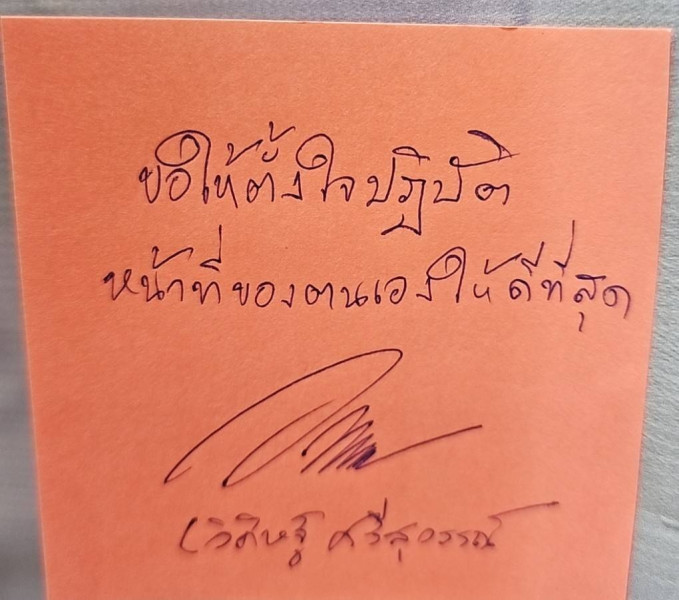 ขอให้ตั้งใจปฏิบัติ
หน้าที่ของตนเองให้ดีที่สุด
ศรีสุวรรณ์